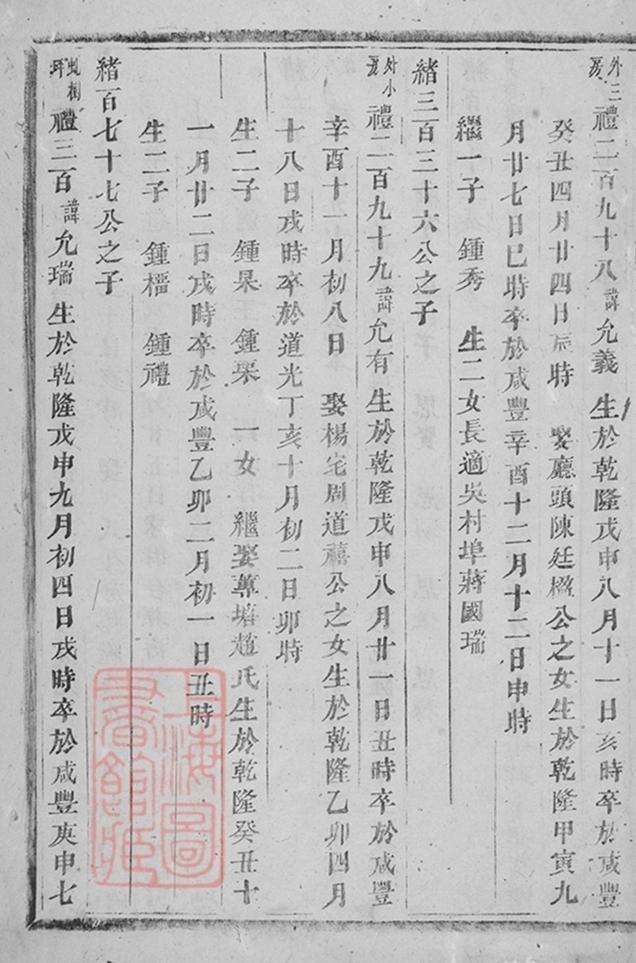 外三房 禮二百九十八 諱允義 生於乾隆戊申八月十一日亥時卒於咸豐
癸丑四月廿四日辰時 娶廳頭陳廷楹公之女生於乾隆甲寅九
月廿七日巳時卒於咸豐辛酉十二月十二日申時
繼一子 鍾秀 生二女長適吳村埠蔣國瑞
緒三百三十六公之子
外小房 禮二百九十九 諱允有 生於乾隆戊申八月廿一日丑時卒於咸豐
辛酉十一月初八日 娶楊宅周道禧公之女生於乾隆乙卯四月
十八日戌時卒於道光丁亥十月初二日卯時
生二子 鍾杲 鍾 一女 繼娶 塘趙氏生於乾隆癸丑十
一月廿二日戌時卒於咸豐乙卯二月初一日丑時
生二子 鍾 鍾禮
緒百七十七公之子
樹 禮三百 諱允瑞 生於乾隆戊申九月初四日戌時卒於咸豐庚申七
上海圖
書館藏